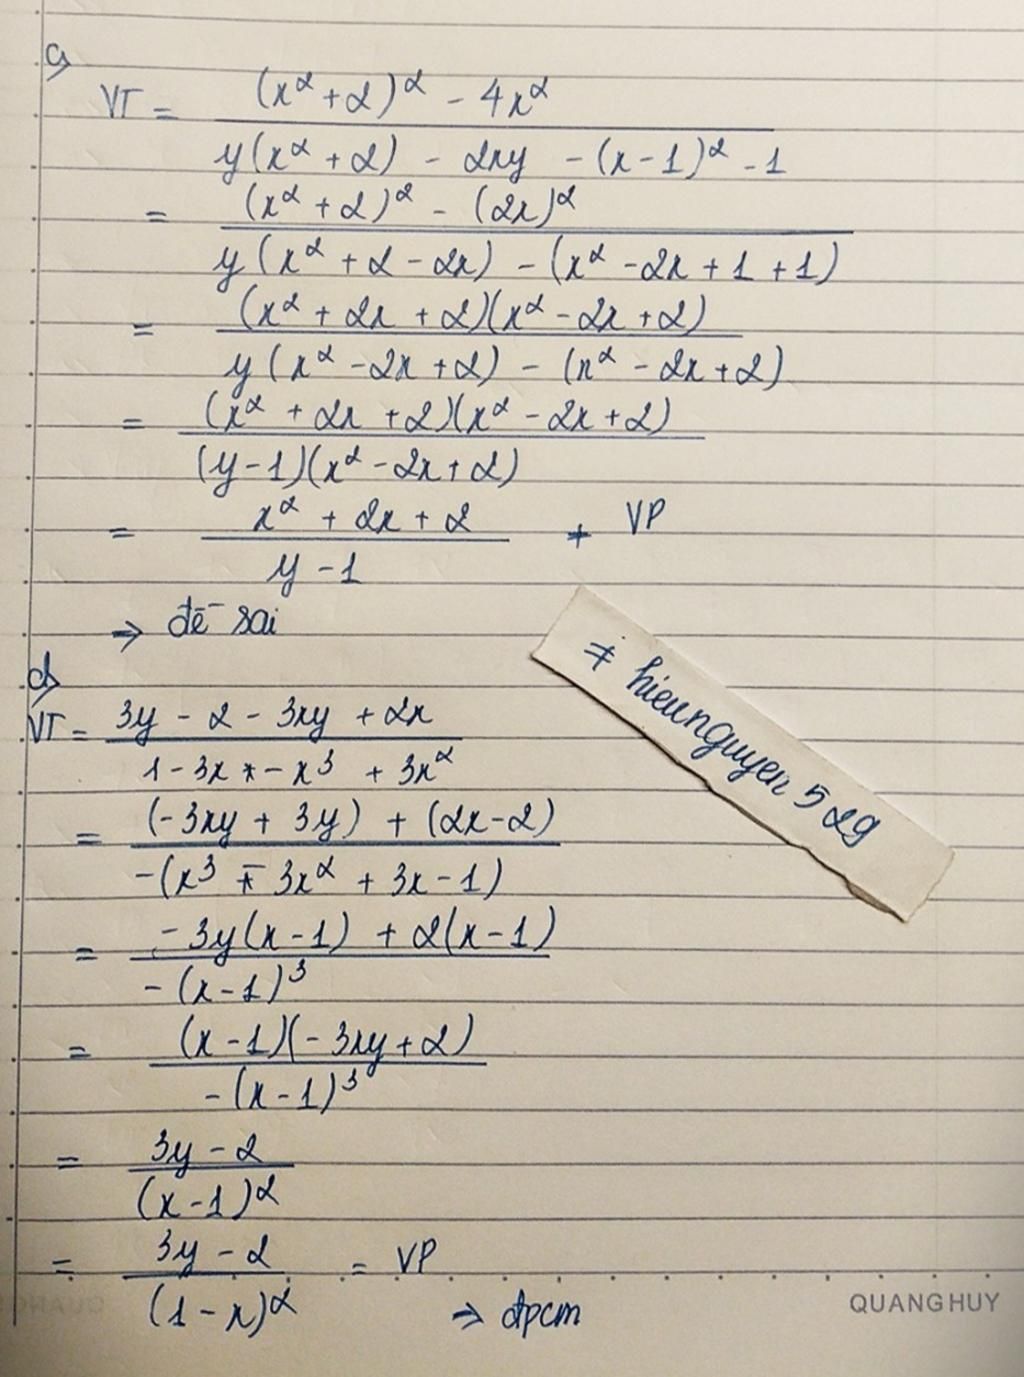 c)
VT = \frac{(x^2+2)^2 - 4x^2}{y(x^2+2) - 2xy - (x-1)^2 - 1}
= \frac{(x^2+2)^2 - (2x)^2}{y(x^2+2-2x) - (x^2-2x+1+1)}
= \frac{(x^2+2x+2)(x^2-2x+2)}{y(x^2-2x+2) - (x^2-2x+2)}
= \frac{(x^2+2x+2)(x^2-2x+2)}{(y-1)(x^2-2x+2)}
= \frac{x^2+2x+2}{y-1} ≠ VP
⇒ đề sai
d)
VT = \frac{3y-2-3xy+2x}{1-3x-x^3+3x^2}
= \frac{(-3xy+3y)+(2x-2)}{-(x^3-3x^2+3x-1)}
= \frac{-3y(x-1)+2(x-1)}{-(x-1)^3}
= \frac{(x-1)(-3xy+2)}{-(x-1)^3}
= \frac{3y-2}{(x-1)^2}
= \frac{3y-2}{(1-x)^2} = VP
⇒ đpcm
# hieunguyen 529
QUANGHUY